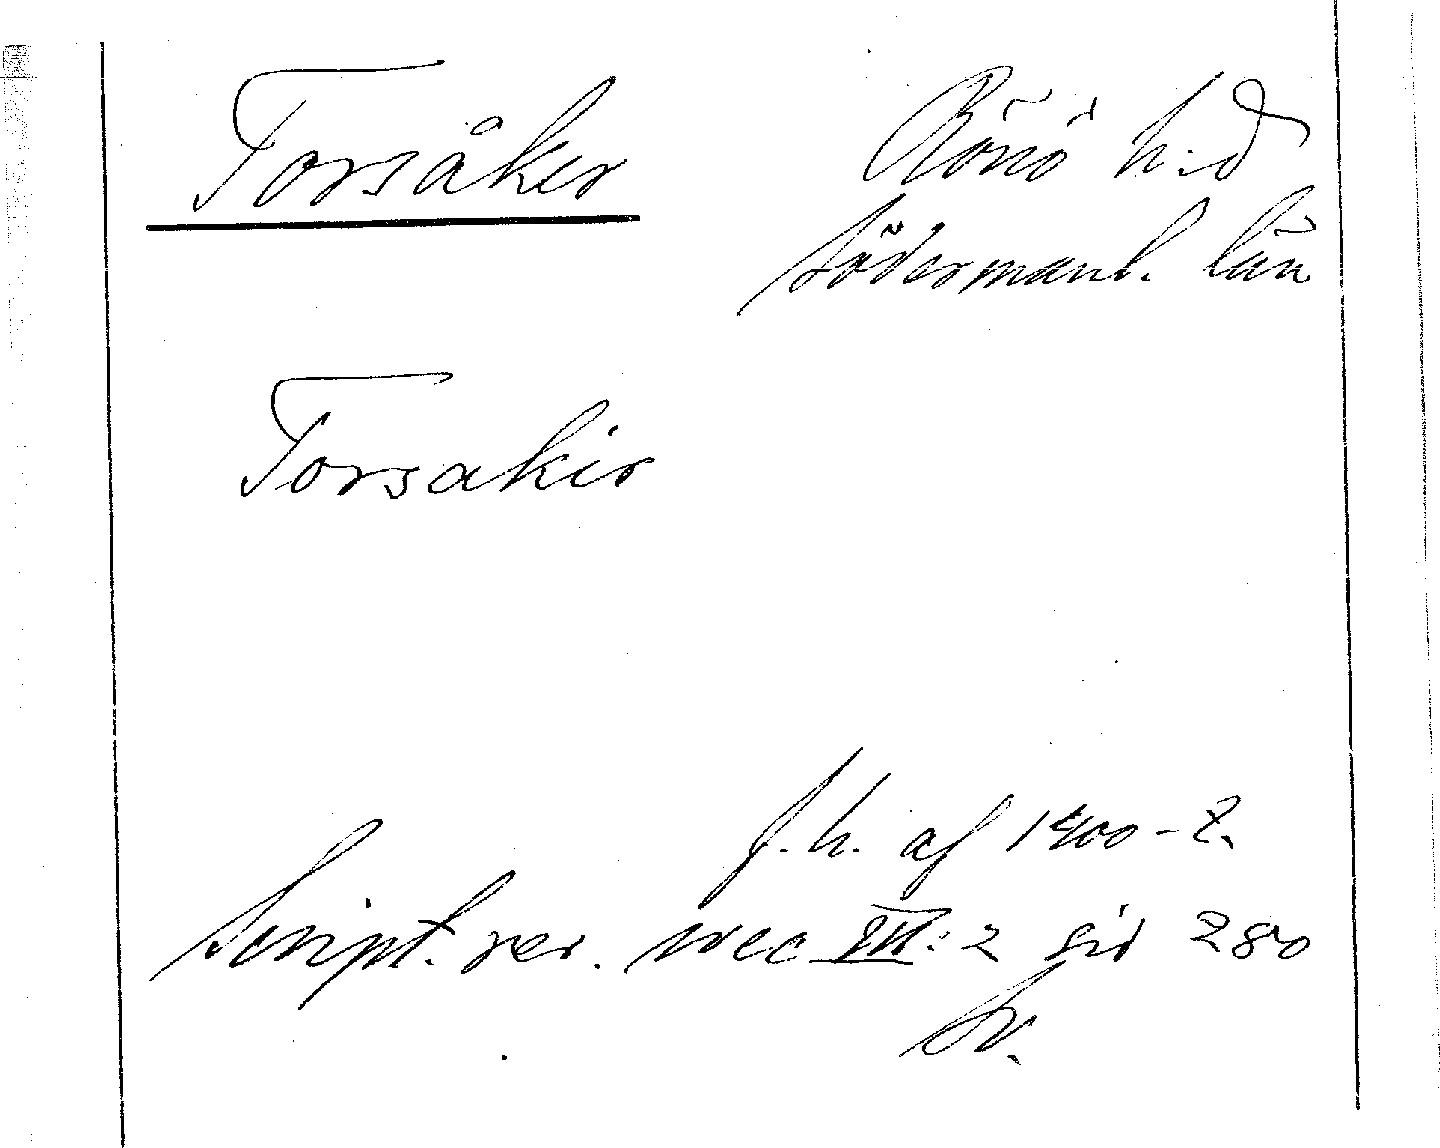 Torsåker
Rönö h:d
Södermanl. län
Torsakir
f. h. af 1400-t.
Script. rer. svec III:2 sid 280
Sv.